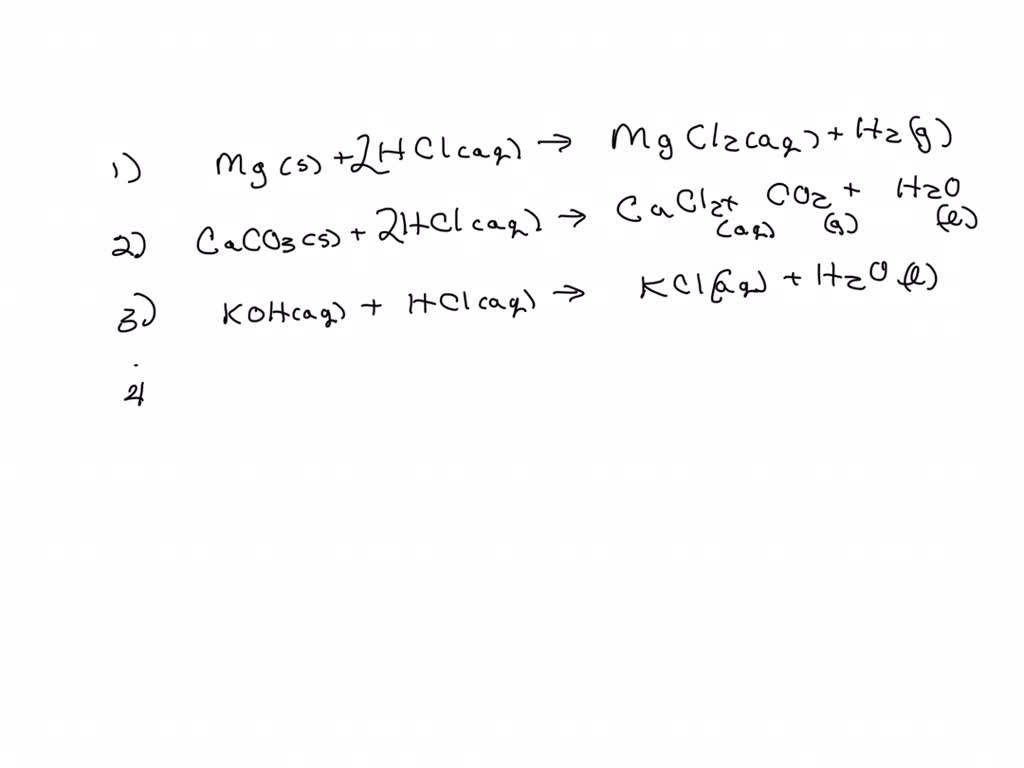 1) Mg(s) + 2HCl(aq) → MgCl2(aq) + H2(g)
2) CaCO3(s) + 2HCl(aq) → CaCl2(aq) + CO2(g) + H2O(l)
3) KOH(aq) + HCl(aq) → KCl(aq) + H2O(l)
4